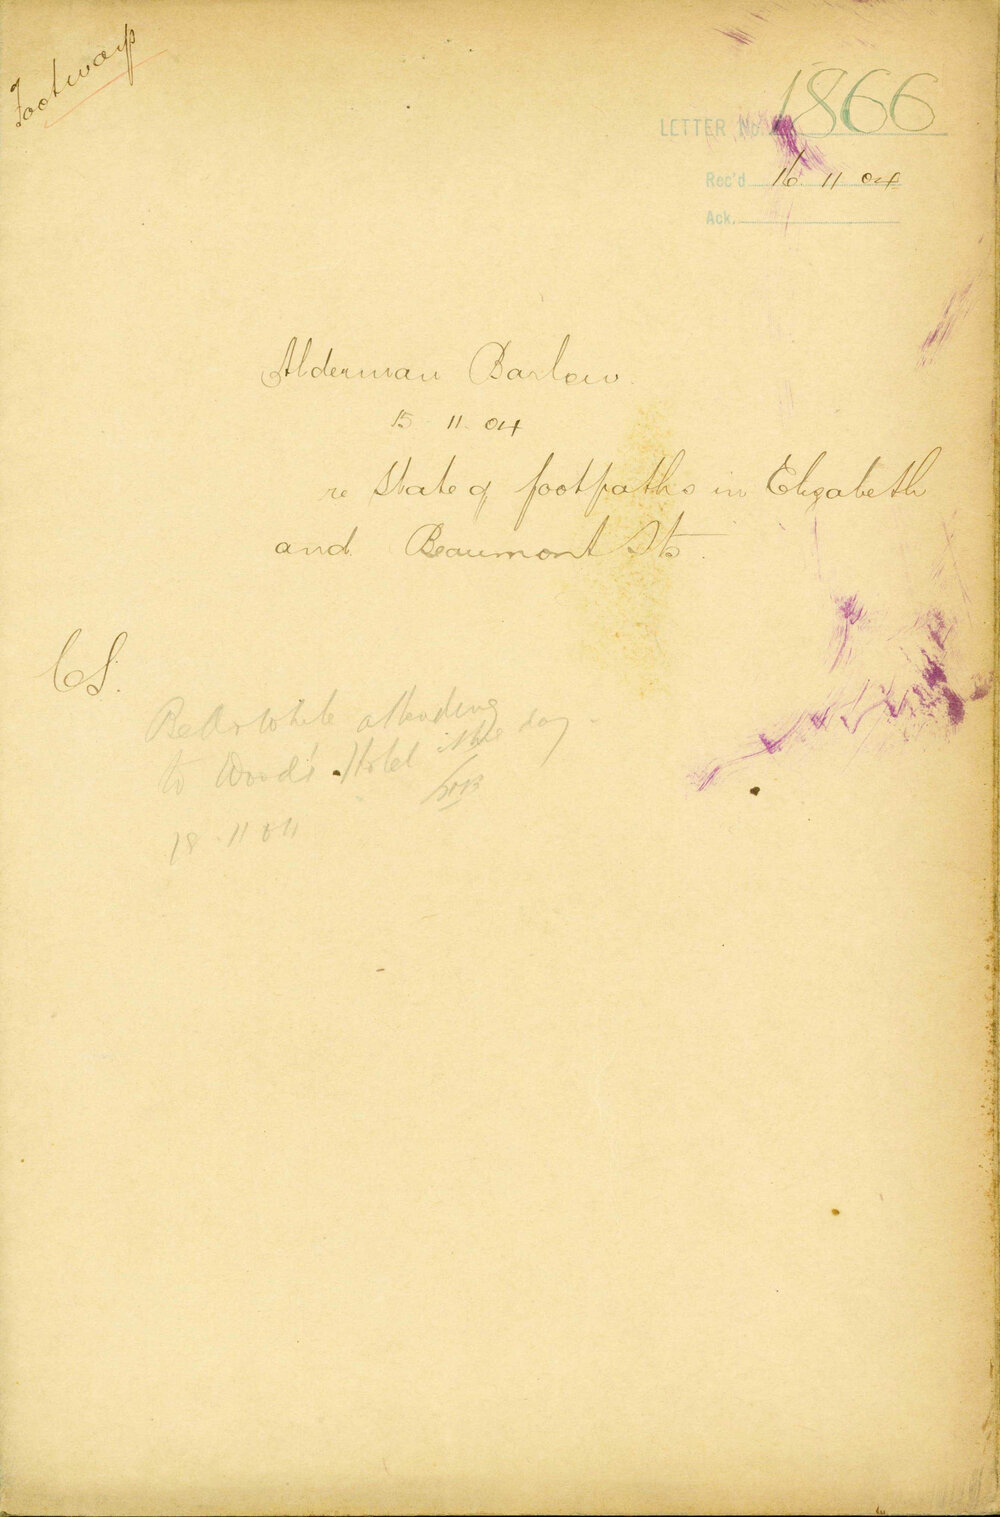 Footways
LETTER No. 1866
Rec'd 16 11 04
Ack.
Alderman Barlow
15 11 04
re State of footpaths in Elizabeth
and Beaumont Sts.
CS.
while attending
to Wood's Hotel day
18 11 04